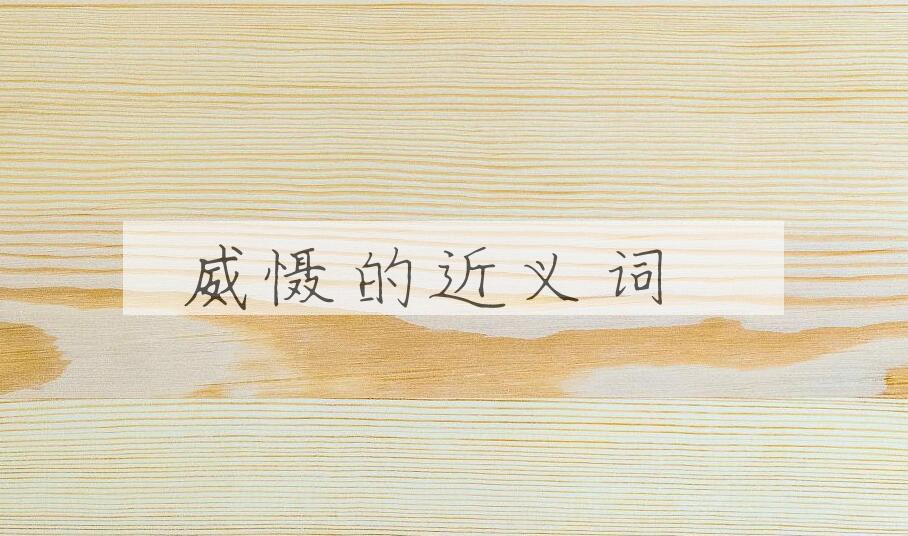 威慑的近义词